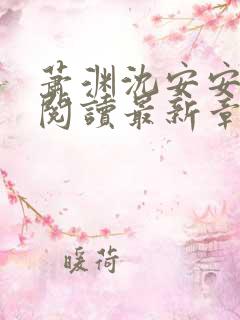 萧渊沈安安
阅读最新章
暖荷